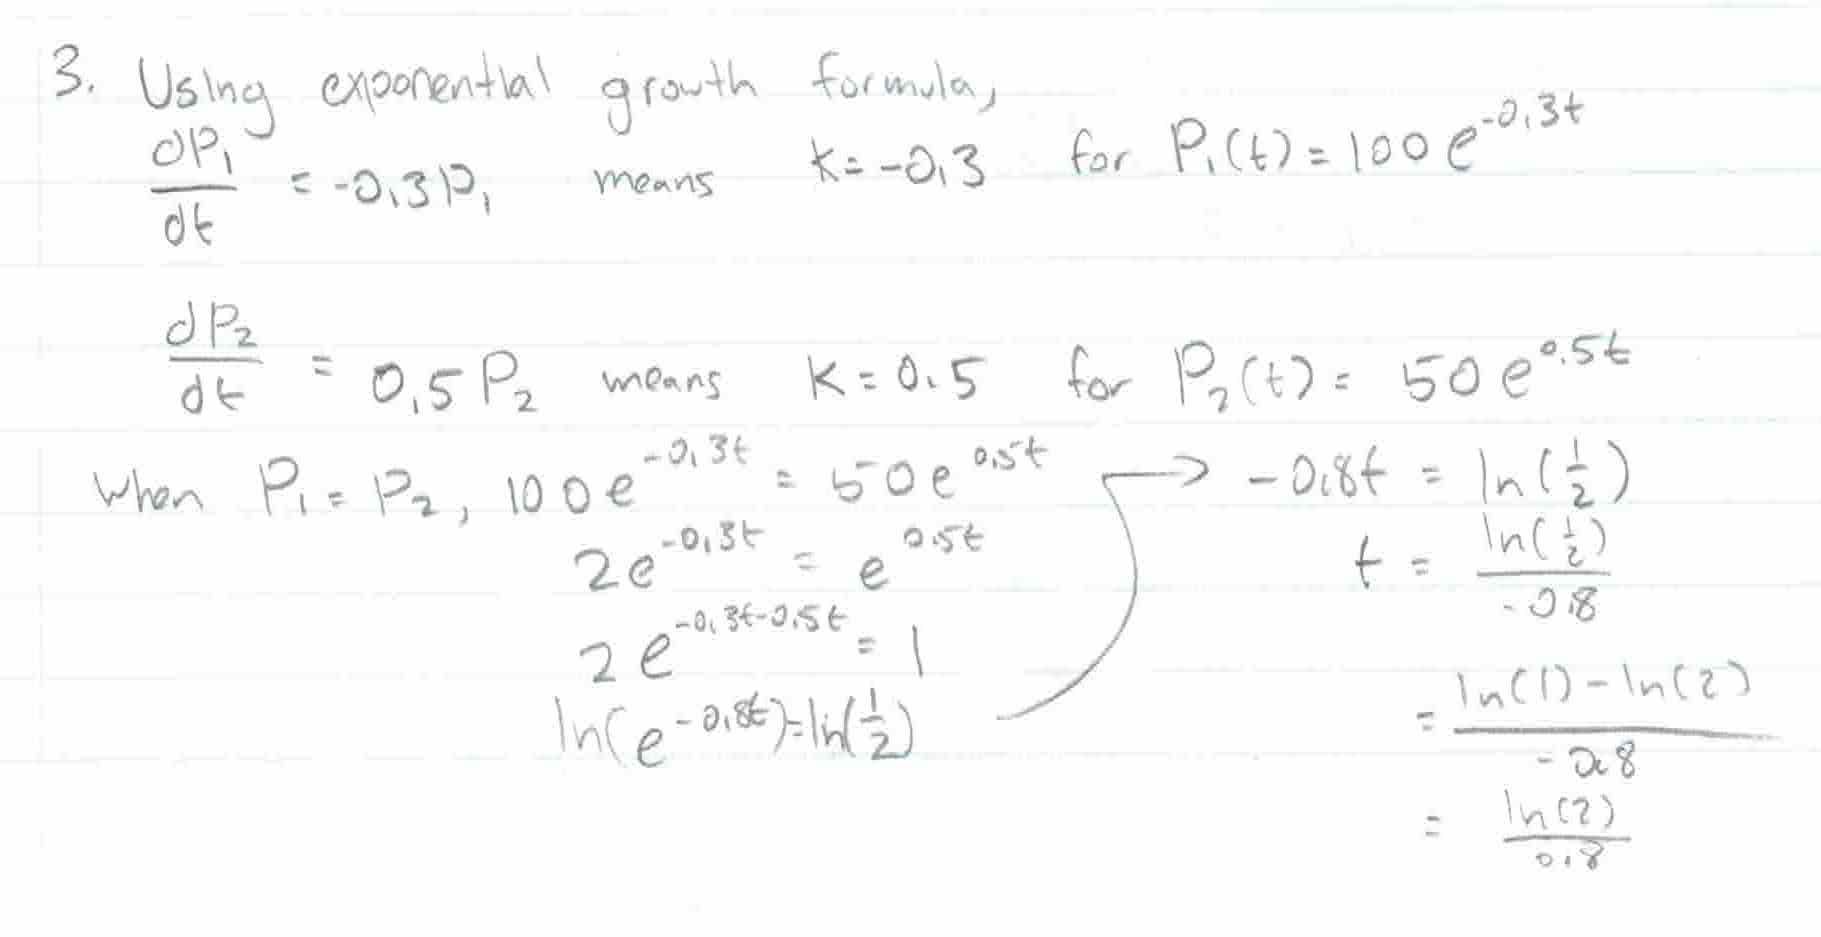 3. Using exponential growth formula,
dP₁/dt = -0.3P₁ means k = -0.3 for P₁(t) = 100e^(-0.3t)
dP₂/dt = 0.5P₂ means k = 0.5 for P₂(t) = 50e^(0.5t)
When P₁ = P₂, 100e^(-0.3t) = 50e^(0.5t)
2e^(-0.3t) = e^(0.5t)
2e^(-0.3t-0.5t) = 1
ln(e^(-0.8t)) = ln(1/2)
→ -0.8t = ln(1/2)
t = ln(1/2)/-0.8
= (ln(1) - ln(2))/-0.8
= ln(2)/0.8